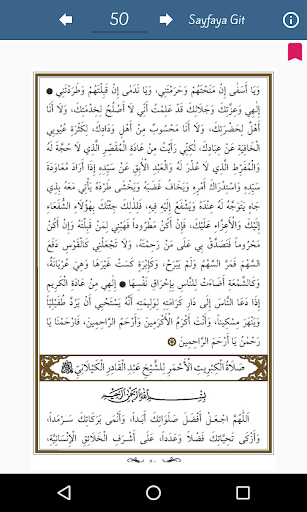 50
Sayfaya Git
وَيَا أَسَفَى إِنْ مَنَحْتَهُمْ وَحَرَمْتَنِي، وَيَا نَدَمَى إِنْ قَبِلْتَهُمْ وَطَرَدْتَنِي
إِلٰهِي وَعِزَّتِكَ وَجَلَالِكَ قَدْ عَلِمْتُ أَنِّي لَا أَصْلُحُ لِخِدْمَتِكَ، وَلَا أَنَا
أَهْلٌ لِحَضْرَتِكَ، وَلَا أَنَا مَحْسُوبٌ مِنْ أَهْلِ وِدَادِكَ، لِكَثْرَةِ عُيُوبِي
الْخَافِيَةِ عَنْ عِبَادِكَ، لَكِنِّي رَأَيْتُ مِنْ عَادَةِ الْمُقَصِّرِ الَّذِي لَا حُجَّةَ لَهُ
وَالْمُفَرِّطِ الَّذِي لَا عُذْرَ لَهُ وَالْعَبْدِ الْآبِقِ عَنْ سَيِّدِهِ إِذَا أَرَادَ مُعَاوَدَةَ
سَيِّدِهِ وَاسْتِدْرَاكَ أَمْرِهِ وَيَخَافُ غَضَبَهُ وَيَخْشَى طَرْدَهُ يَأْتِي مَعَهُ بِذِي
جَاهٍ يَتَوَجَّهُ لَهُ عِنْدَهُ وَيَشْفَعُ إِلَيْهِ فِيهِ، فَلِذٰلِكَ جِئْتُكَ بِهٰؤُلَاءِ الشُّفَعَاءِ
وَالْأَعِزَّاءِ عَلَيْكَ، فَإِنْ أَكُنْ مَطْرُودًا فَهَبْنِي لِمَنْ قَبِلْتَهُ وَإِنْ أَكُنْ
مَحْرُومًا فَتَصَدَّقْ بِي عَلَى مَنْ رَحِمْتَهُ، وَلَا تَجْعَلْنِي كَالْقَوْسِ دَفَعَ
السَّهْمَ فَمَرَّ السَّهْمُ وَلَمْ يَبْرَحْ، وَكَإِبْرَةٍ كَسَتْ غَيْرَهَا وَهِيَ عُرْيَانَةٌ،
وَكَالشَّمْعَةِ أَضَاءَتْ لِلنَّاسِ بِإِحْرَاقِ نَفْسِهَا إِلٰهِي مِنْ عَادَةِ الْكَرِيمِ
إِذَا دَعَا النَّاسَ إِلَى دَارِ كَرَامَتِهِ لِوَلِيمَتِهِ أَنَّهُ يَسْتَحْيِي أَنْ يَرُدَّ طُفَيْلِيًّا
وَيَنْهَرَ مِسْكِينًا، وَأَنْتَ أَكْرَمُ الْأَكْرَمِينَ وَأَرْحَمُ الرَّاحِمِينَ، فَارْحَمْنَا يَا
رَحْمٰنُ يَا أَرْحَمَ الرَّاحِمِينَ
صَلَاةُ الْكِبْرِيتِ الْأَحْمَرِ لِلشَّيْخِ عَبْدِ الْقَادِرِ الْكَيْلَانِيِّ
بِسْمِ اللهِ الرَّحْمٰنِ الرَّحِيمِ
اَللّٰهُمَّ اجْعَلْ أَفْضَلَ صَلَوَاتِكَ أَبَدًا، وَأَنْمَى بَرَكَاتِكَ سَرْمَدًا،
وَأَزْكَى تَحِيَّاتِكَ فَضْلًا وَعَدَدًا، عَلَى أَشْرَفِ الْخَلَائِقِ الْإِنْسَانِيَّةِ،
٥٠